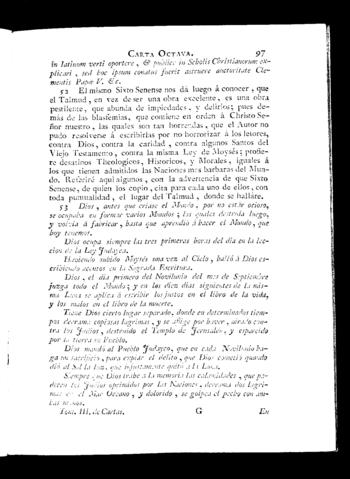 CARTA OCTAVA. 97
in latinum verti oportere, & publicè in Scholis Christianorum ex-
plicari, sed hoc ipsum conatus fuerit astruere auctoritate Cle-
mentis Papæ V. &c.
52 El mismo Sixto Senense nos dá luego á conocer, que
el Talmud, en vez de ser una obra excelente, es una obra
pestilente, que abunda de impiedades, y delirios; pues de-
más de las blasfemias, que contiene en orden á Christo Se-
ñor nuestro, las quales son tan horrendas, que el Autor no
pudo resolverse á escribirlas por no horrorizar á los letores,
contra Dios, contra la caridad, contra algunos Santos del
Viejo Testamento, contra la misma Ley de Moysés; profie-
re desatinos Theologicos, Historicos, y Morales, iguales á
los que tienen admitidos las Naciones mas barbaras del Mun-
do. Referiré aqui algunos, con la advertencia de que Sixto
Senense, de quien los copio, cita para cada uno de ellos, con
toda puntualidad, el lugar del Talmud, donde se hallare.
53 Dios, antes que criase el Mundo, por no estár ocioso,
se ocupaba en formar varios Mundos; los quales destruía luego,
y volvia á fabricar, hasta que aprendió á hacer el Mundo, que
hoy tenemos.
Dios ocupa siempre las tres primeras horas del dia en la lec-
cion de la Ley Judayca.
Haviendo subido Moysés una vez al Cielo, halló á Dios es-
cribiendo acentos en la Sagrada Escritura.
Dios, el dia primero del Novilunio del mes de Septiembre
juzga todo el Mundo; y en los diez dias siguientes de la mis-
ma Luna se aplica á escribir los justos en el libro de la vida,
y los malos en el libro de la muerte.
Tiene Dios cierto lugar separado, donde en determinados tiem-
pos derrama copiosas lagrimas, y se aflige por haver, airado con-
tra los Judios, destruido el Templo de Jerusalén, y esparcido
por la tierra su Pueblo.
Dios mandó al Pueblo Judayco, que en cada Novilunio ha-
ga un sacrificio, para expiar el delito, que Dios cometió quando
dió al Sol la luz, que injustamente quitó á la Luna.
Siempre que Dios trahe á la memoria las calamidades, que pa-
decen los Judios oprimidos por las Naciones, derrama dos lagri-
mas en el Mar Oceano, y dolorido, se golpea el pecho con am-
bas manos.
Tom. III. de Cartas. G En